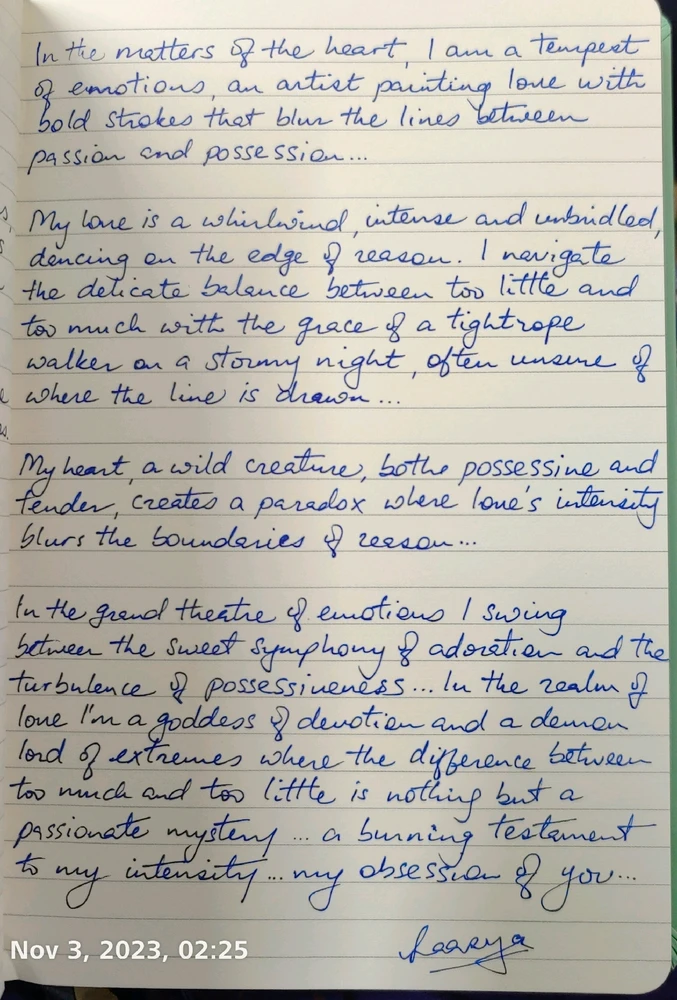 In the matters of the heart, I am a tempest
of emotions, an artist painting love with
bold strokes that blur the lines between
passion and possession...
My love is a whirlwind, intense and unbridled,
dancing on the edge of reason. I navigate
the delicate balance between too little and
too much with the grace of a tightrope
walker on a stormy night, often unsure of
where the line is drawn...
My heart, a wild creature, bothe possessive and
tender, creates a paradox where love's intensity
blurs the boundaries of reason...
In the grand theatre of emotions I swing
between the sweet symphony of adoration and the
turbulence of possessiveness... In the realm of
love I'm a goddess of devotion and a demon
lord of extremes where the difference between
too much and too little is nothing but a
passionate mystery... a burning testament
to my intensity... my obsession of you...
Nov 3, 2023, 02:25